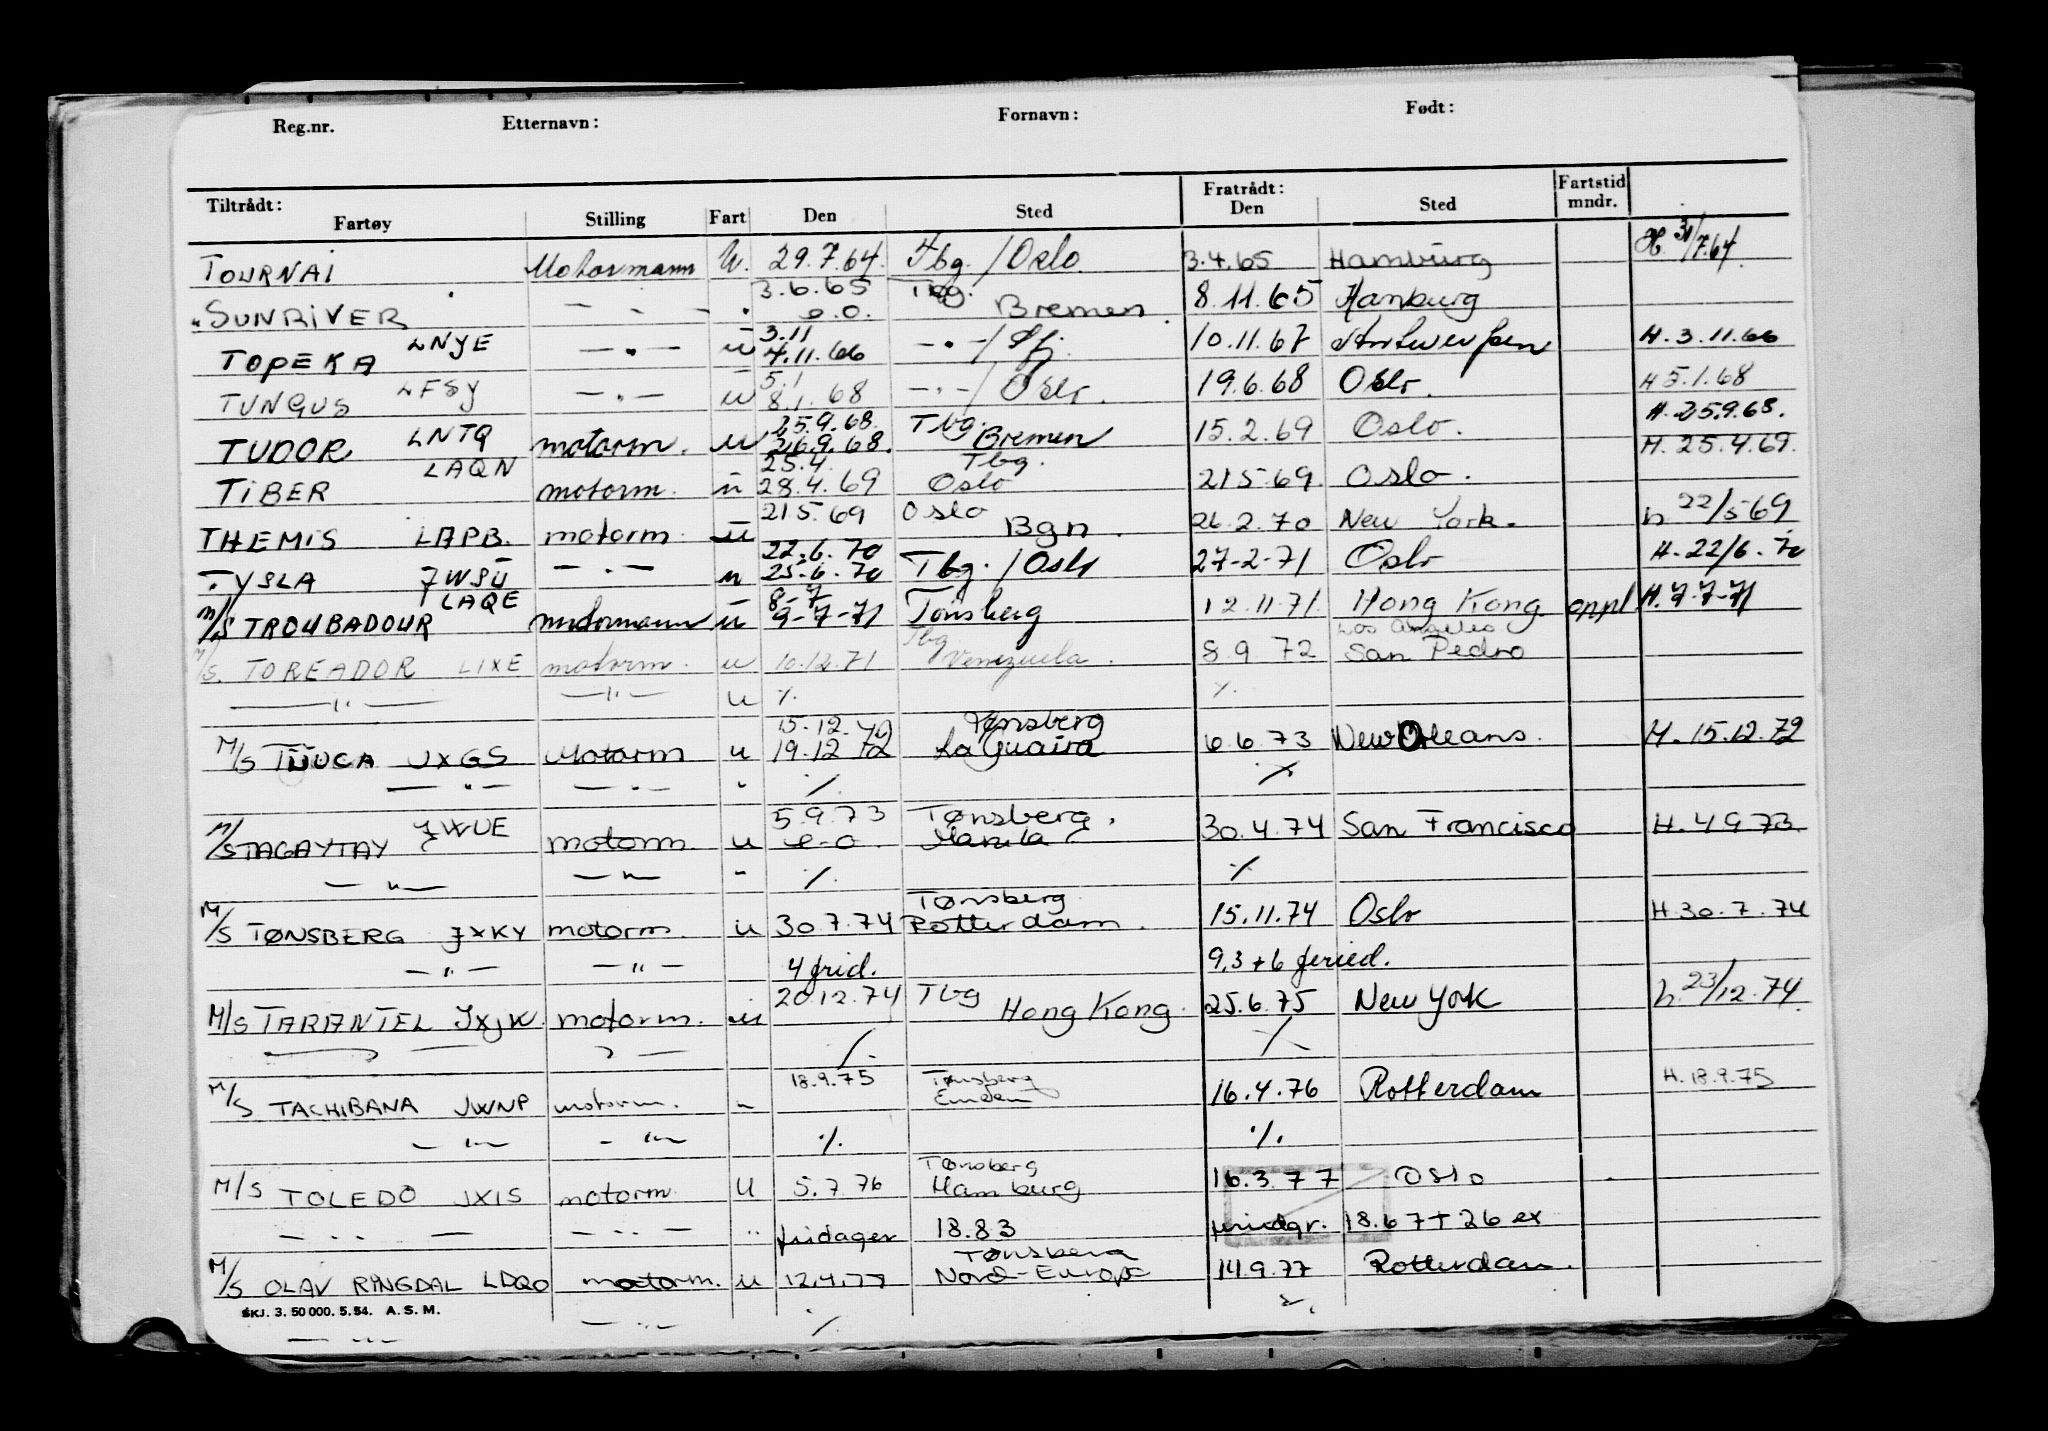 Reg.nr. Etternavn: Fornavn: Født:
Tiltrådt: Fratrådt: Fartstid
Fartøy Stilling Fart Den Sted Den Sted mndr.
TOURNAI Motormann U. 29.7.64. Tbg. / Oslo 3.4.65 Hamburg H 31/7.64.
3.6.65 Tbg.
SUNRIVER — " — e.o. Bremen. 8.11.65 Hamburg
3.11
TOPEKA LNYE — " — u 4.11.66 — " — / 10.11.67 Antwerpen H. 3.11.66
5.1
TUNGUS LFSY — " — u 8.1.68 — " — / Oslo. 19.6.68 Oslo. H 5.1.68
25.9.68. Tbg. H. 25.9.68.
TUDOR LNTQ motorm. u 26.9.68. Bremen 15.2.69 Oslo. H. 25.4.69.
LAQN 25.4. Tbg.
TIBER motorm. u 28.4.69 Oslo 21.5.69. Oslo.
21.5.69 Oslo
THEMIS LAPB. motorm. u Bgn. 26.2.70 New York. h 22/5-69
22.6.70
TYSLA JWSU — " — u 25.6.70 Tbg. / Oslo 27-2-71 Oslo H. 22/6.70
LAQE 8-7
M/S TROUBADOUR motormann u 9-7-71 Tønsberg 12.11.71. Hong Kong oppl H. 7-7-71
Tbg. Los Angeles
M/S. TOREADOR LIXE motorm. u 10.12.71 Venezuela. 8.9.72 San Pedro
— " — — " — u %. %.
15.12.72 Tønsberg
M/S TIJUCA JXGS Motorm u 19.12.72 La Guaira 6.6.73 New Orleans. H. 15.12.72
— " — — " — " %. %
5.9.73 Tønsberg.
M/S TAGAYTAY JWUE motorm. u e.o. Manila 30.4.74 San Francisco H. 4.9.73
— " — — " — " %. %
Tønsberg
M/S TØNSBERG JXKY motorm. u 30.7.74 Rotterdam. 15.11.74 Oslo H 30.7.74
— " — — " — 4 frid. 9,3 + 6 feried.
20.12.74 Tbg
M/S TARANTEL JXJW. motorm. u Hong Kong. 25.6.75 New York h. 23/12.74.
— " — " — %. %
18.9.75 Tønsberg
M/S TACHIBANA JWNP motorm. " Emden 16.4.76 Rotterdam H. 18.9.75
— " — — " — %. %.
Tønsberg
M/S TOLEDO JXIS motorm. U 5.7.76 Hamburg 16.3.77 Oslo
— " — — " — " fridager 18.83 18.67 + 26 ex
Tønsberg
M/S OLAV RINGDAL LDQO motorm. u 12.4.77 Nord-Europa 14.9.77 Rotterdam.
SKJ. 3. 50 000. 5. 54. A. S. M.
— " — — " — %